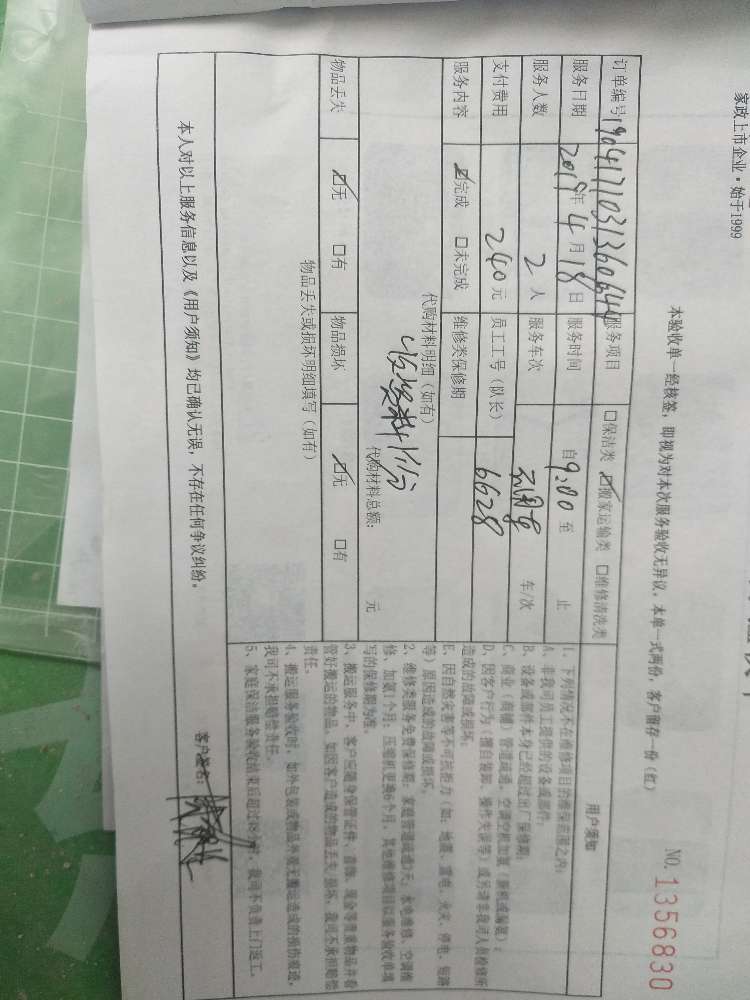 家政上市企业·始于1999
本验收单一经核签，即视为对本次服务验收无异议。本单一式两份，客户留存一份（红）
NO. 1356830
订单编号 190417103136064 服务项目 口保洁类 ☑搬家运输类 口维修清洗类
服务日期 2019年 4月 18日 服务时间 自 9:00 至 止
服务人数 2 人 服务车次 车/次
支付费用 240 元 员工工号（队长） 6628
服务内容 ☑完成 口未完成 维修类保修期
代购材料明细（如有）
收资料1份
代购材料总额： 元
物品丢失 ☑无 口有 物品损坏 ☑无 口有
物品丢失或损坏明细填写（如有）
用户须知
1、下列情况不在维修项目的维保范围之内：
A、非我司员工提供的设备或部件；
B、设备或部件本身已经超过出厂保修期；
C、商业（商铺）管道疏通、空调空机加氨（新机或漏氨）；
D、因客户行为（擅自装卸、操作失误等）或另请非我司人员检修所
造成的故障或损坏；
E、因自然灾害等不可抗拒力（如：地震、雷电、火灾、停电、短路
等）原因造成的故障或损坏。
2、维修类服务免费保修期：家庭管道疏通7天；水电维修、空调维
修、加氨1个月；压缩机更换6个月，其他维修项目以服务验收单填
写的保修期为准。
3、搬运服务中，客户应随身保管证件、首饰、现金等贵重物品并看
管好搬运的物品，如因客户造成的物品丢失、损坏，我司不承担赔偿
责任。
4、搬运服务验收时，如外包装或物品外观无搬运造成的损伤痕迹，
我司不承担赔偿责任。
5、家庭保洁服务验收结束后超过48小时，我司不负责上门返工。
本人对以上服务信息以及《用户须知》均已确认无误，不存在任何争议纠纷。
客户签名：